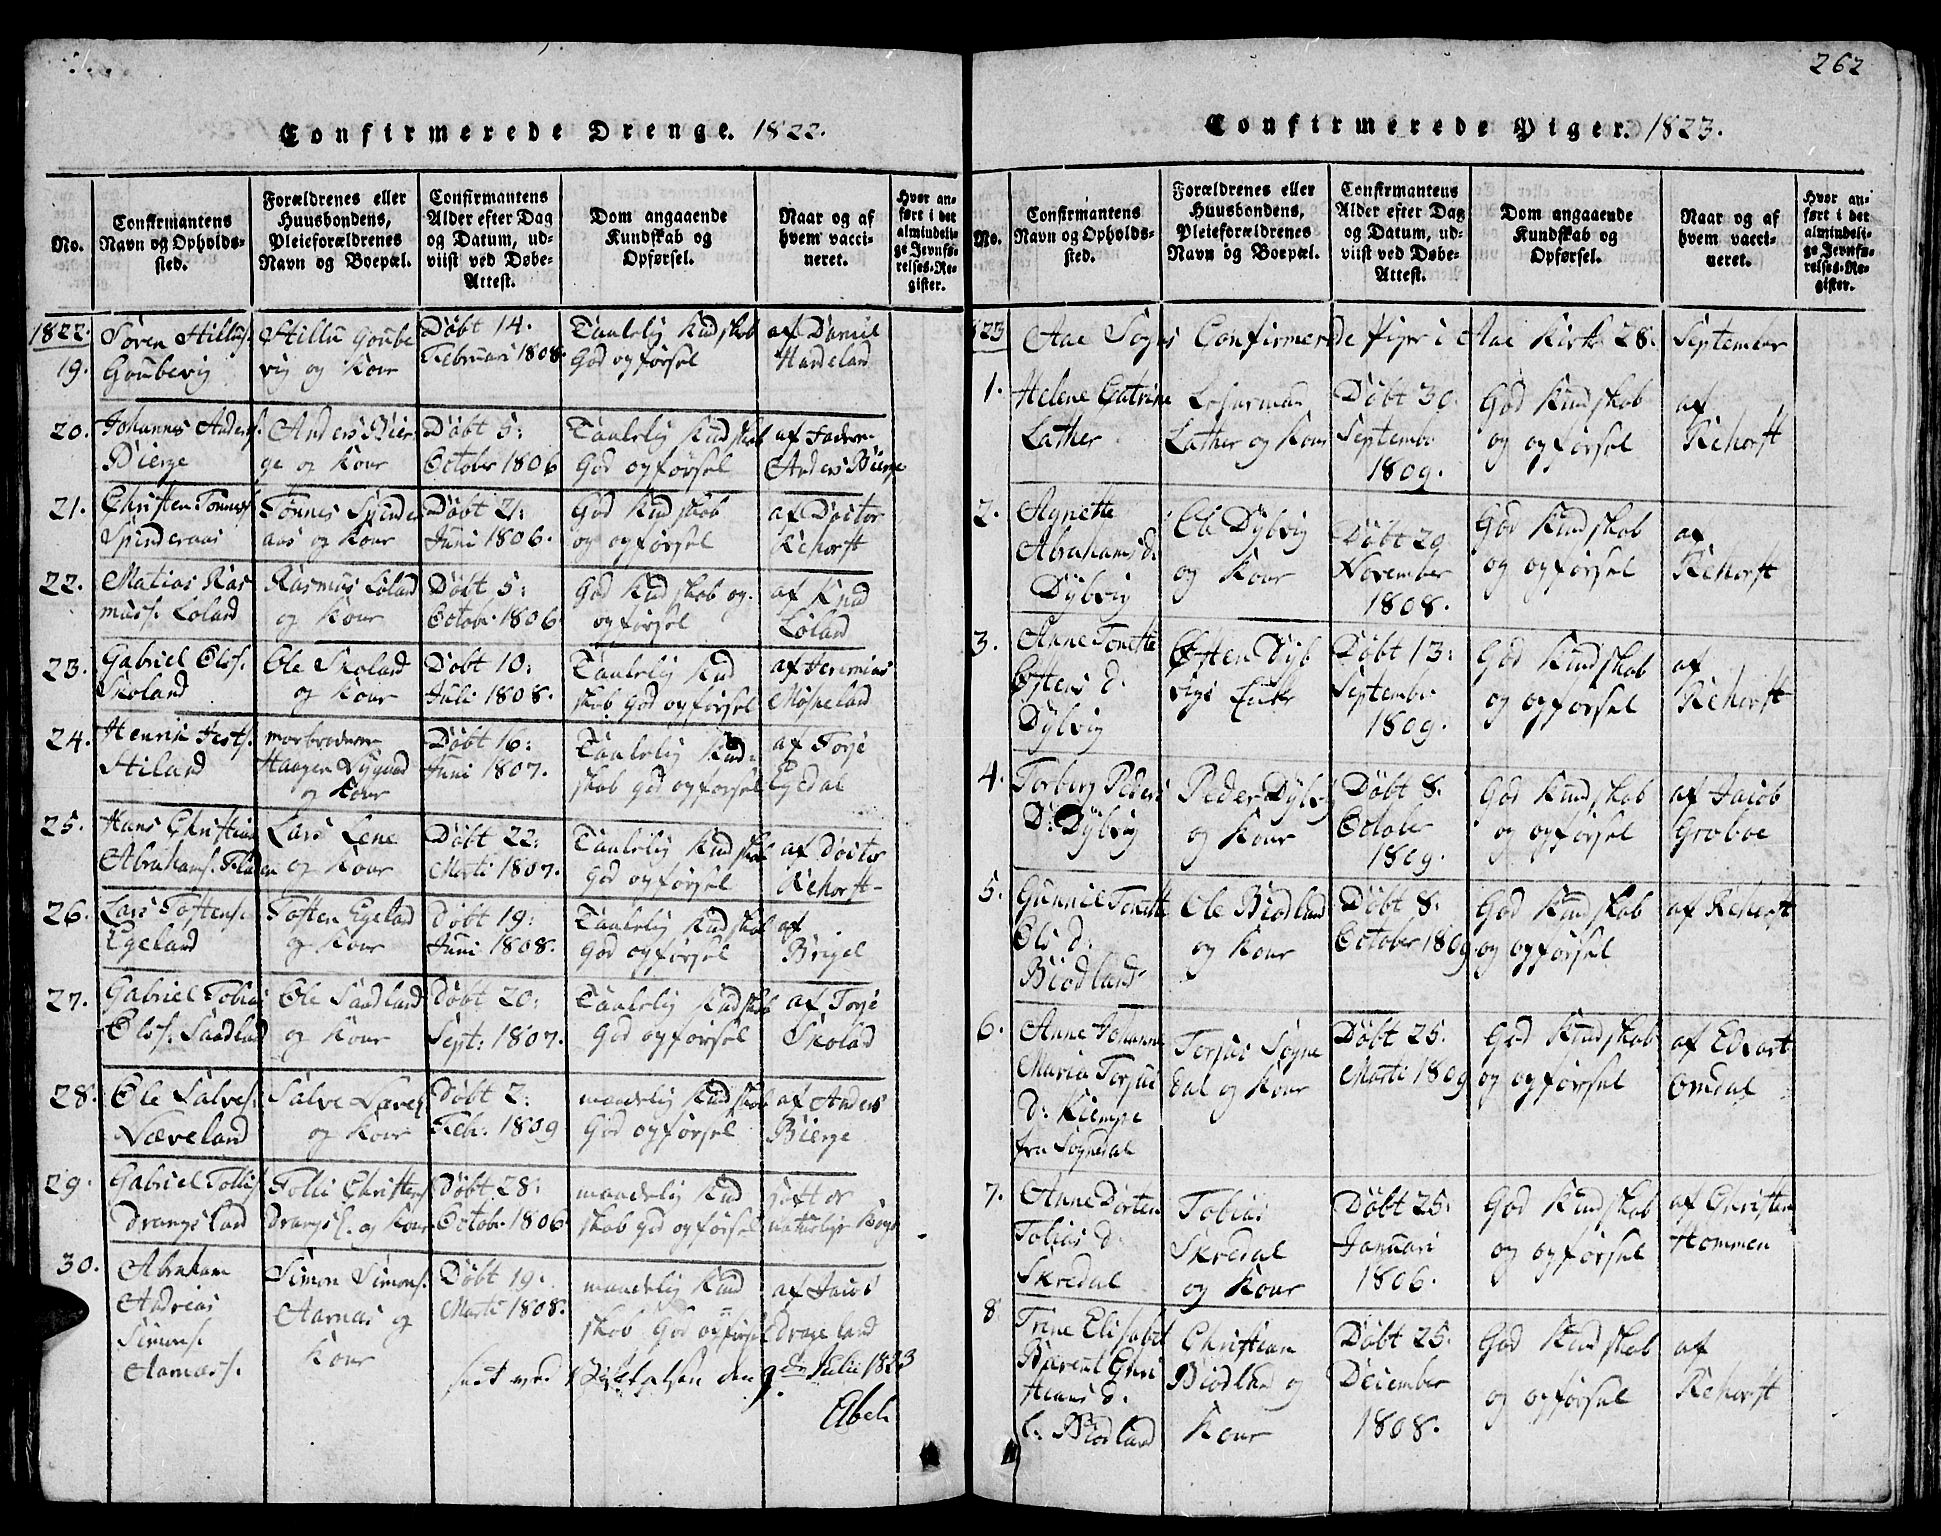 Confirmerede Drenge. 1822.
No.
Confirmantens
Navn og Opholds-
sted.
Forældrenes eller
Huusbondens,
Pleieforældrenes
Navn og Boepæl.
Confirmantens
Alder efter Dag
og Datum, ud-
viist ved Døbe-
Attest.
Dom angaaende
Kundskab og
Opførsel.
Naar og af
hvem vacci-
neret.
Hvor an-
ført i det
almindeli-
ge Jevnfø-
relses-Re-
gister.
1822.
19.
Søren
Goubevig
Goube
vig og Kone
Døbt 14.
Februari 1808.
Taalelig Kundskab
God opførsel
af Daniel
Hardeland
20.
Johannes Anders.
Bierge
Anders Bier
ge og Kone
Døbt 5:
October 1806
Taalelig Kundskab
God opførsel
af Faderen
Anders Bierge
21.
Christen Tønnes.
Spinderaas
Tønnes Spinder
aas og Kone
Døbt 21:
Juni 1806.
God Kundskab
og opførsel
af Doctor
Rehorst
22.
Matias Ras
mus. Loland
Rasmus Loland
og Kone
Døbt 5:
Octobr. 1806
God Kundskab og
opførsel
af Knud
Loland
23.
Gabriel Ols.
Skoland
Ole Skoland
og Kone
Døbt 10:
Juli 1808.
Taalelig Kund
skab God opførsel
af Jeremias
Møskeland
24.
Henrik
Stiland
morbroderen
Haagen Nygaard
og Kone
Døbt 16:
Juni 1807.
Taalelig Kund
skab god opførsel
af Torje
Egedal
25.
Hans Christian
Abrahams. Fladen
Lars Lene
og Kone
Døbt 22:
Marti 1807.
Taalelig Kundskab
God opførsel
af Doctor
Rehorst
26.
Lars Tostens.
Egeland
Tosten Egelad
og Kone
Døbt 19:
Juni 1808.
Taalelig Kundskab
God opførsel
af
27.
Gabriel Tobias
Ols. Saadland
Ole Saadland
og Kone
Døbt 20:
Sept: 1807.
Taalelig Kundskab
God opførsel
af Torje
Skolad
28.
Ole Salves.
Næveland
Salve Nævel
og Kone
Døbt 2:
Feb: 1809
maadelig Kundskab
God opførsel
af Anders
Bierge
29.
Gabriel
Drangsland
Christens.
Drangsl. og Kone
Døbt 28:
Octobr. 1806
maadelig Kund
skab god opførsel
haft de
naturlige Kopper
30.
Abraham
Andreas
Simons.
Aarnæs.
Simon Simons.
Aarnæs og
Kone
Døbt 19:
Marti 1808.
maadelig Kund
skab God opførsel
af Jacob
Drageland
seet ved Visitatsen den 9de Julii 1823
262
Confirmerede Piger. 1823.
No.
Confirmantens
Navn og Opholds-
sted.
Forældrenes eller
Huusbondens,
Pleieforældrenes
Navn og Boepæl.
Confirmantens
Alder efter Dag
og Datum, ud-
viist ved Døbe-
Attest.
Dom angaaende
Kundskab og
Opførsel.
Naar og af
hvem vacci-
neret.
Hvor an-
ført i det
almindeli-
ge Jevnfø-
relses-Re-
gister.
1823
Aae Sogns Confirmerede Piger i Aae Kirke 28: September
1.
Helene Catrine
Lather
Lather og Kone
Døbt 30.
Septembr
1809.
God Kundskab
og opførsel
af
Rehorst
2.
Agnette
Abrahams d.
Dybvig
Ole Dybvig
og Kone
Døbt 29
November
1808.
God Kundskab
og opførsel
af
Rehorst
3.
Anne Tonette
Østens d.
Dybvig
Østen Dyb
vigs Enke
Døbt 13:
Septembr
1809.
God Kundskab
og opførsel
af
Rehorst
4.
Torborg Peders
D: Dybvig
Peder Dybvig
og Kone
Døbt 8.
October
1809.
God Kundskab
og opførsel
af Jacob
Groboe
5.
Gunnil Tonette
Ols d.
Biodland
Ole Biodland
og Kone
Døbt 8:
October 1809
God Kundskab
og opførsel
af Rehorst
6.
Anne Johanne
Maria Torjus
d: Kiempe
fra Sognedal
Torjus Sogne
dal og Kone
Døbt 25.
Marti 1809
God Kundskab
og opførsel
af Edvart
Omdal
7.
Anne Dorten
Tobias d.
Skredal
Tobias
Skredal
og Kone
Døbt 25:
Januari
1806.
God Kundskab
og opførsel
af Christen
Hommen
8
Trine Elisabet
Christians d.
Biodland
Christian
Biodland og
Kone
Døbt 25:
December
1808.
God Kundskab
og opførsel
af
Rehorst